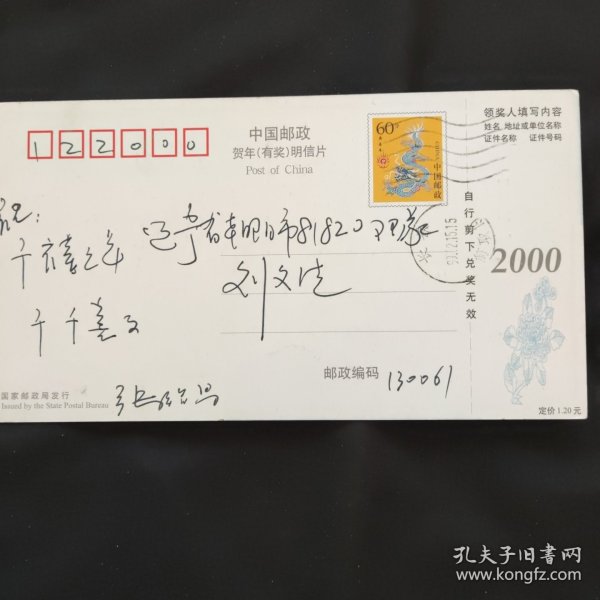 122000
中国邮政
贺年(有奖)明信片
Post of China
60分
中国邮政
CHINA
领奖人填写内容
姓名 地址或单位名称
证件名称 证件号码
自行剪下兑奖无效
2000
定价 1.20 元
祝:
千禧之年
千千喜文
辽宁省朝阳市81820部队
刘文
邮政编码 130061
国家邮政局发行
Issued by the State Postal Bureau
孔夫子旧书网
www.kongfz.com